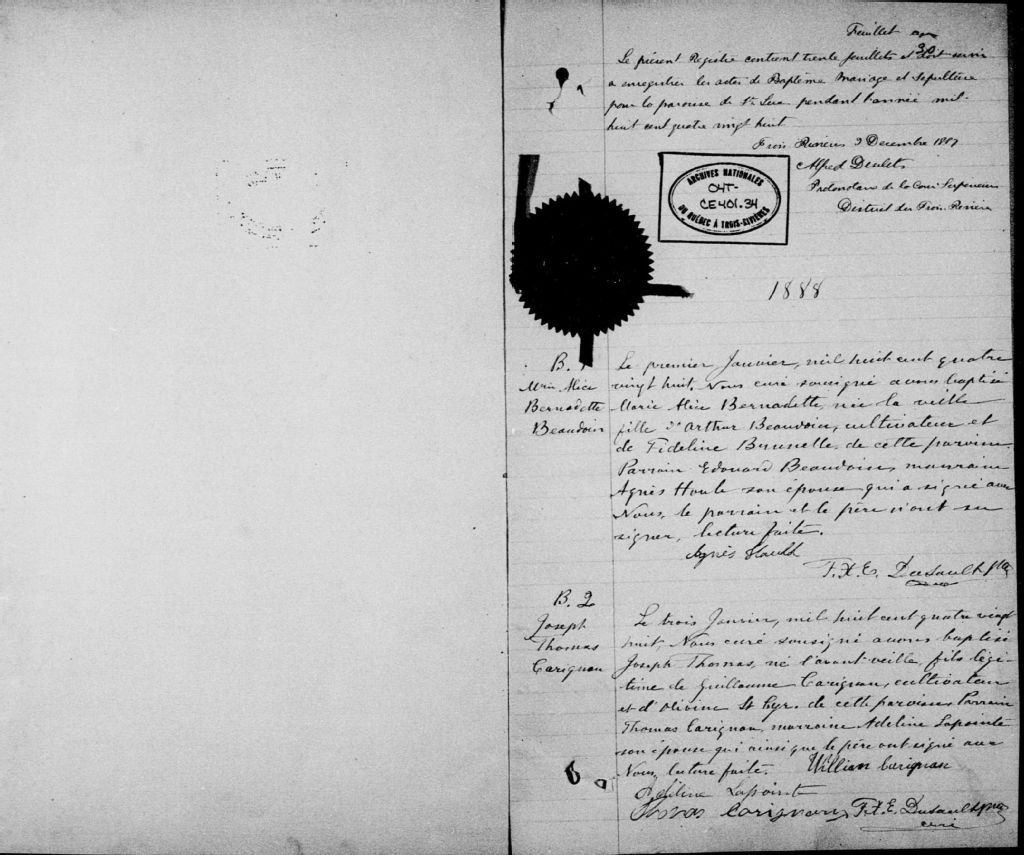 Feuillet
30
Le présent Registre contient trente feuillets et doit servir
a enregistrer les actes de Baptême Mariage et Sepulture
pour la paroisse de St Luc pendant l'année mil-
huit cent quatre vingt huit
Trois Rivières 3 Decembre 1887
Alfred Desilets
Protonotaire de la Cour Superieure
District des Trois-Rivières
ARCHIVES NATIONALES
04T-
CE401.34
DU QUÉBEC À TROIS-RIVIÈRES
1888
B. 1
Mrie Alice
Bernadette
Beaudoin
Le premier Janvier, mil huit cent quatre
vingt huit, Nous curé sousigné avons baptisé
Marie Alice Bernadette, née la veille
fille d'Arthur Beaudoin, cultivateur et
de Fideline Brunelle de cette paroisse.
Parrain Edouard Beaudoin, marraine
Agnès Houle son épouse qui a signé avec
Nous, le parrain et le père n'ont su
signer, lecture faite.
Agnès
F. X. E. Dusault ptre
B. 2
Joseph
Thomas
Carignan
Le trois Janvier, mil huit cent quatre vingt
huit, Nous curé sousigné avons baptisé
Joseph Thomas, né l'avant-veille, fils légi-
time de Guillaume Carignan, cultivateur
et d'Olivine St Cyr. de cette paroisse. Parrain
Thomas Carignan, marraine Adeline Lapointe
son épouse qui ainsi que le père ont signé avec
Nous, lecture faite. William Carignan
Adeline Lapoint
Thomas Carignan F. X. E. Dusault ptre
curé